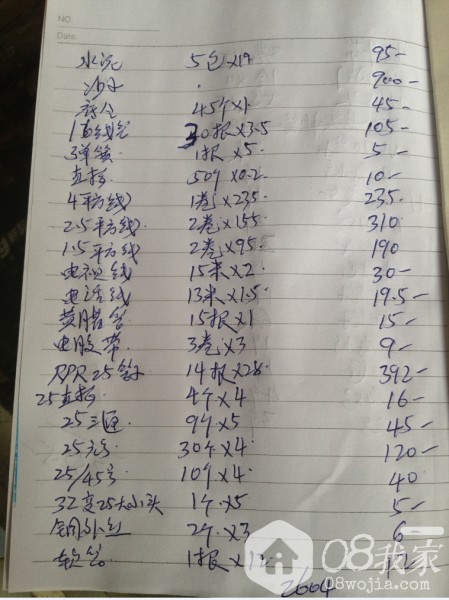 NO.
Date.
水泥 5包×19 95-
沙子 . 900-
底合 45个×1 45-
1直线管 30根×3.5 105-
3弹簧 1根×5. 5-
直接 50个×0.2 10-
4平方线 1卷×235 235.
2.5平方线. 2卷×155 310
1.5平方线 2卷×95. 190
电视线 15米×2. 30-
电话线 13米×1.5. 19.5-
黄腊管 15根×1 15-
电胶带 3卷×3 9-
PPR25管 14根×28. 392-
25直接 4个×4 16-
25三通 9个×5 45-
25弯 30个×4 120-
25/45弯 10个×4 40
32变25大小头 1个×5 5-
铜外丝 2个×3 6-
软管 1根×12 12
2004
08我家
08wojia.com